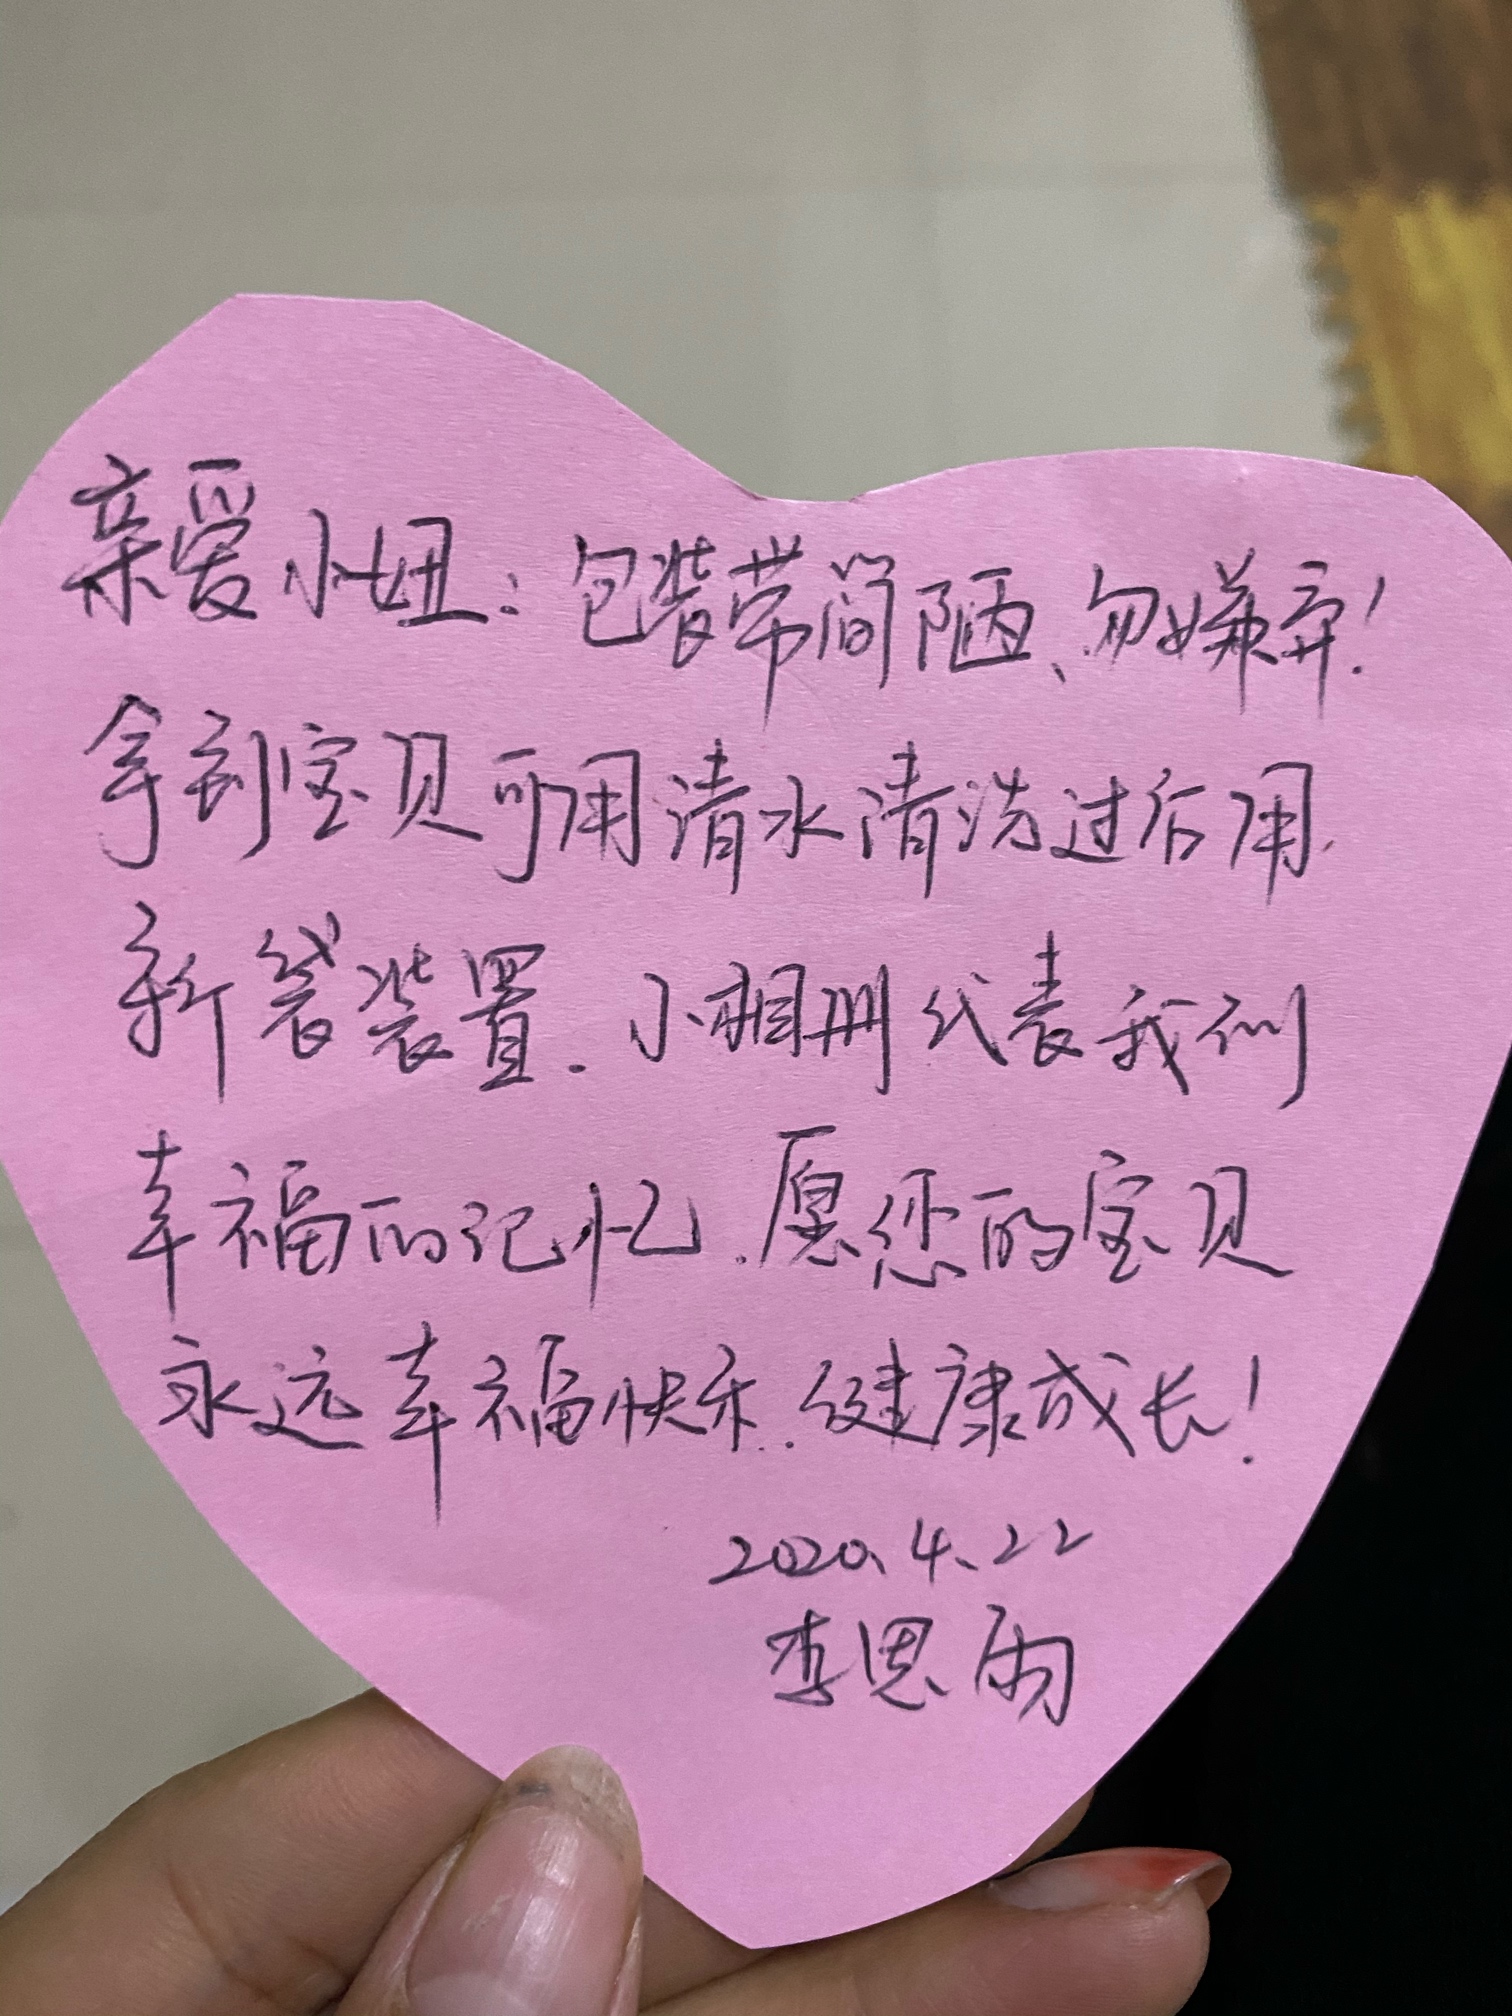 亲爱小妞：包装带简陋、勿嫌弃！
拿到宝贝可用清水清洗过后用
新袋装置.小相册代表我们
幸福的记忆.愿您的宝贝
永远幸福快乐.健康成长！
2020.4.22
李恩雨